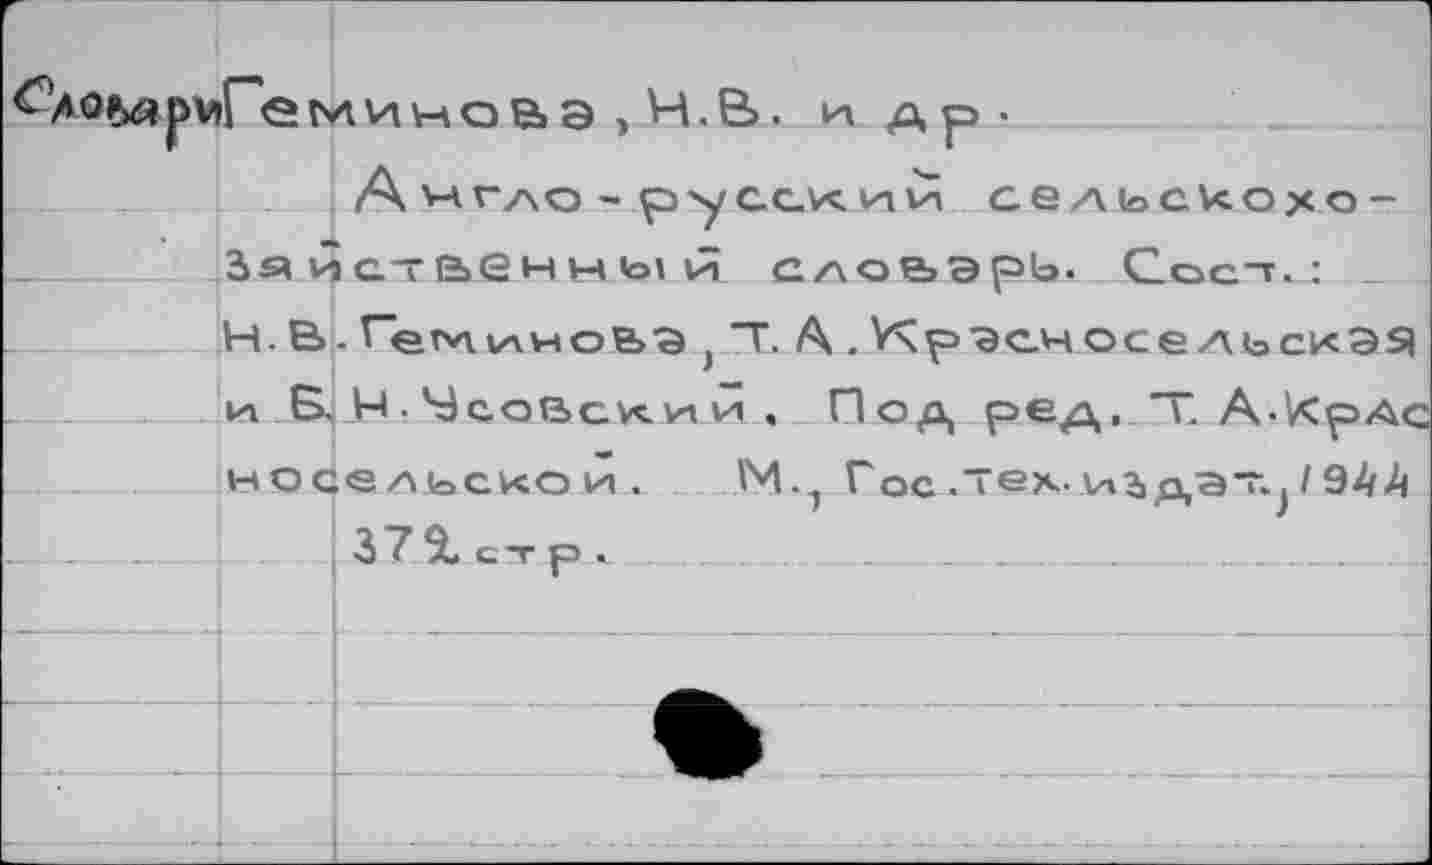 Словари Геминова, Н.В. и др.
Англо-русский сельскохо-
зяйственный словарь. Сост.:
Н.В. Геминова, Т.А. Красносельская
и Б.Н. Усовский. Под ред. Т.А. Крас
носельской. М., Гос.тех.издат., 1944
372 стр.